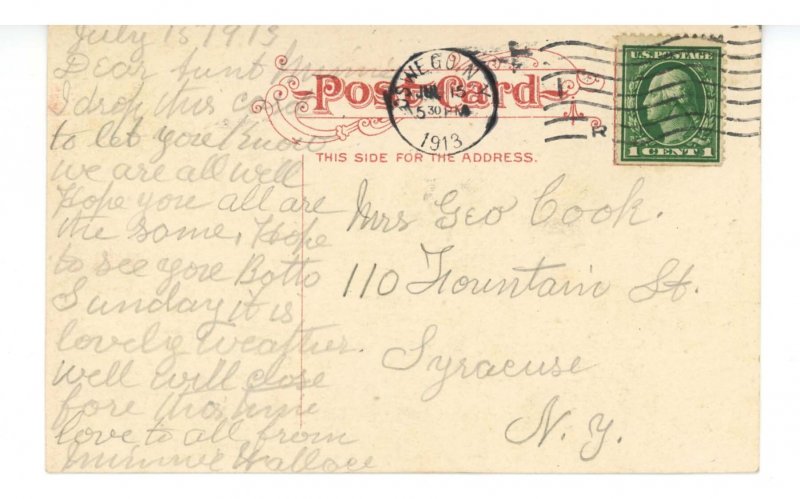 July 15 1913
Dear Aunt Minnie
I drop this card
to let you Know
we are all well
Hope you all are
the same, Hope
to see you Botto
Sunday it is
lovely weather
well will close
fore this time
love to all from
Minnie Wallace
Post Card
THIS SIDE FOR THE ADDRESS.
OSWEGO, N.Y.
JUL 15
5 30 PM
1913
R
U.S. POSTAGE
1 CENT 1
Mrs Geo Cook.
110 Fountain St.
Syracuse
N.Y.